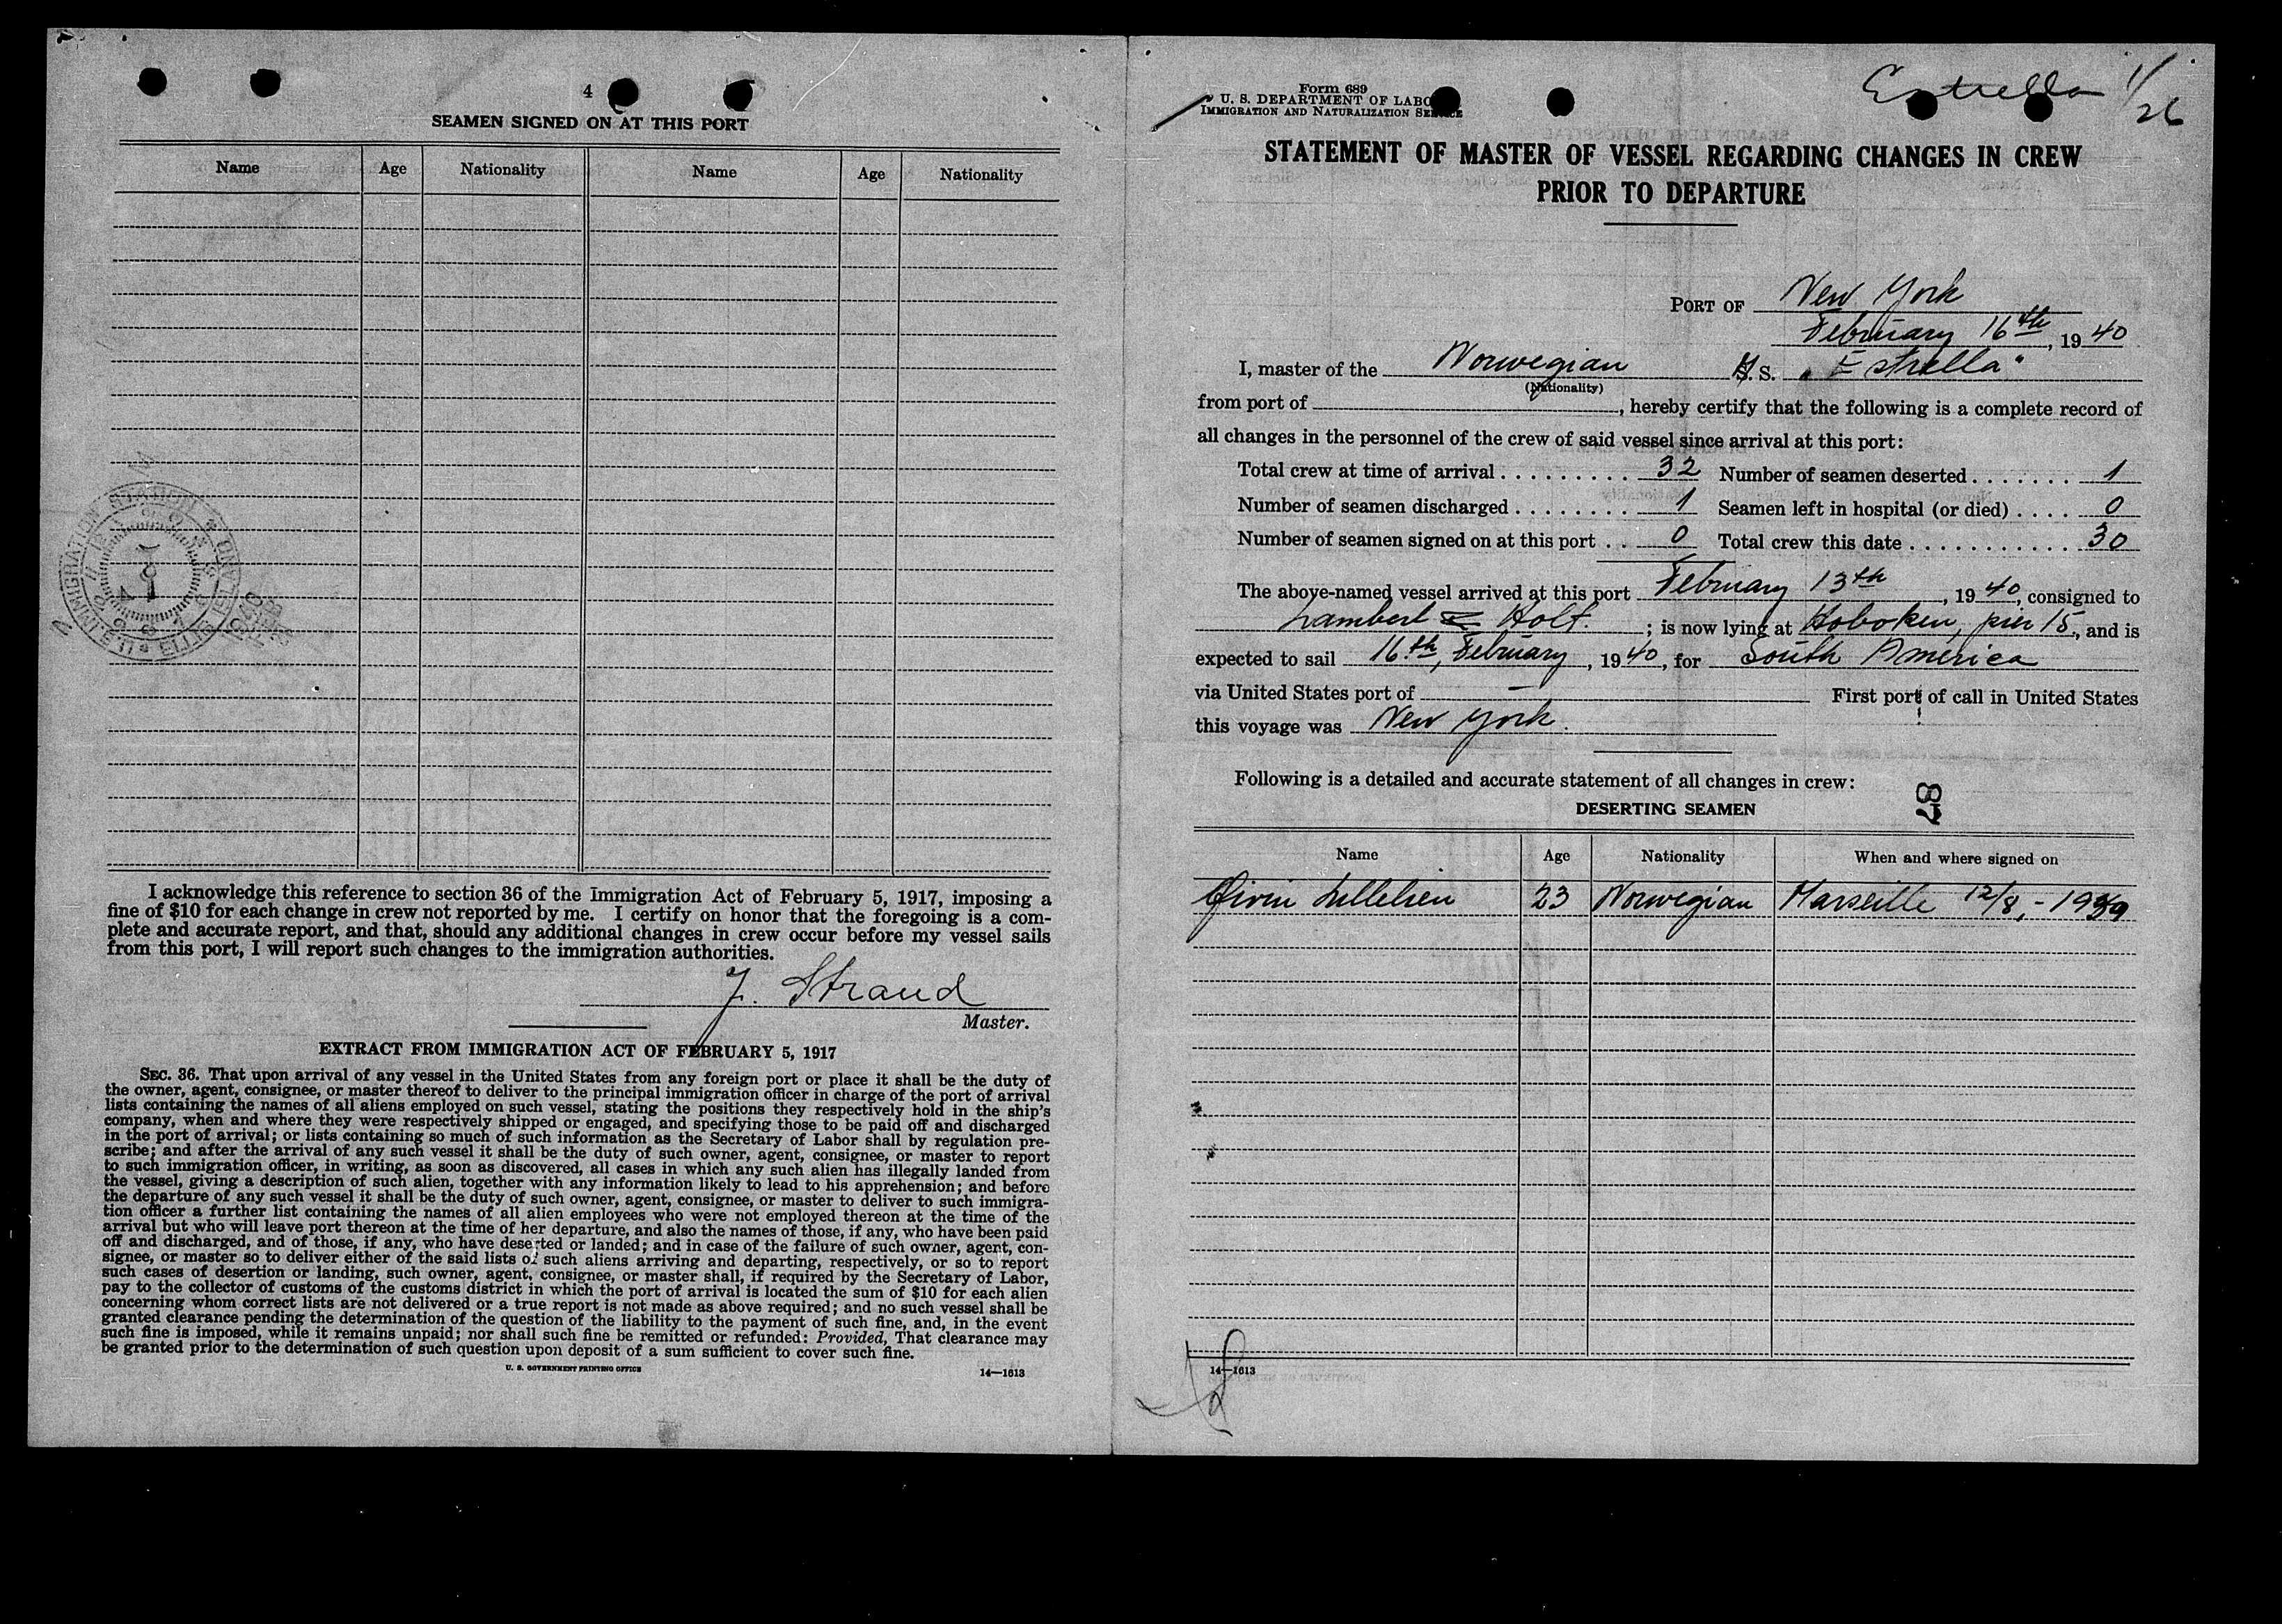 4
SEAMEN SIGNED ON AT THIS PORT
Name Age Nationality Name Age Nationality
I acknowledge this reference to section 36 of the Immigration Act of February 5, 1917, imposing a
fine of $10 for each change in crew not reported by me. I certify on honor that the foregoing is a com-
plete and accurate report, and that, should any additional changes in crew occur before my vessel sails
from this port, I will report such changes to the immigration authorities.
J. Strand
Master.
EXTRACT FROM IMMIGRATION ACT OF FEBRUARY 5, 1917
SEC. 36. That upon arrival of any vessel in the United States from any foreign port or place it shall be the duty of
the owner, agent, consignee, or master thereof to deliver to the principal immigration officer in charge of the port of arrival
lists containing the names of all aliens employed on such vessel, stating the positions they respectively hold in the ship's
company, when and where they were respectively shipped or engaged, and specifying those to be paid off and discharged
in the port of arrival; or lists containing so much of such information as the Secretary of Labor shall by regulation pre-
scribe; and after the arrival of any such vessel it shall be the duty of such owner, agent, consignee, or master to report
to such immigration officer, in writing, as soon as discovered, all cases in which any such alien has illegally landed from
the vessel, giving a description of such alien, together with any information likely to lead to his apprehension; and before
the departure of any such vessel it shall be the duty of such owner, agent, consignee, or master to deliver to such immigra-
tion officer a further list containing the names of all alien employees who were not employed thereon at the time of the
arrival but who will leave port thereon at the time of her departure, and also the names of those, if any, who have been paid
off and discharged, and of those, if any, who have deserted or landed; and in case of the failure of such owner, agent, con-
signee, or master so to deliver either of the said lists of such aliens arriving and departing, respectively, or so to report
such cases of desertion or landing, such owner, agent, consignee, or master shall, if required by the Secretary of Labor,
pay to the collector of customs of the customs district in which the port of arrival is located the sum of $10 for each alien
concerning whom correct lists are not delivered or a true report is not made as above required; and no such vessel shall be
granted clearance pending the determination of the question of the liability to the payment of such fine, and, in the event
such fine is imposed, while it remains unpaid; nor shall such fine be remitted or refunded: Provided, That clearance may
be granted prior to the determination of such question upon deposit of a sum sufficient to cover such fine.
U. S. GOVERNMENT PRINTING OFFICE 14—1613
U.S. IMMIGRATION STATION ELLIS ISLAND
Estrella 1/26
Form 689
U. S. DEPARTMENT OF LABOR
IMMIGRATION AND NATURALIZATION SERVICE
STATEMENT OF MASTER OF VESSEL REGARDING CHANGES IN CREW
PRIOR TO DEPARTURE
PORT OF New York
February 16th, 1940
I, master of the Norwegian M. S. "Estrella"
(Nationality)
from port of , hereby certify that the following is a complete record of
all changes in the personnel of the crew of said vessel since arrival at this port:
Total crew at time of arrival . . . . . . . . . 32 Number of seamen deserted . . . . . . . 1
Number of seamen discharged . . . . . . . . 1 Seamen left in hospital (or died) . . . . 0
Number of seamen signed on at this port . . 0 Total crew this date . . . . . . . . . . . . 30
The above-named vessel arrived at this port February 13th, 1940, consigned to
Lambert & Holt. ; is now lying at Hoboken, pier 15, and is
expected to sail 16th, February, 1940, for South America
via United States port of — First port of call in United States
this voyage was New York.
Following is a detailed and accurate statement of all changes in crew:
87
DESERTING SEAMEN
Name Age Nationality When and where signed on
23 Norwegian Marseille 12/8, - 1939
14—1613